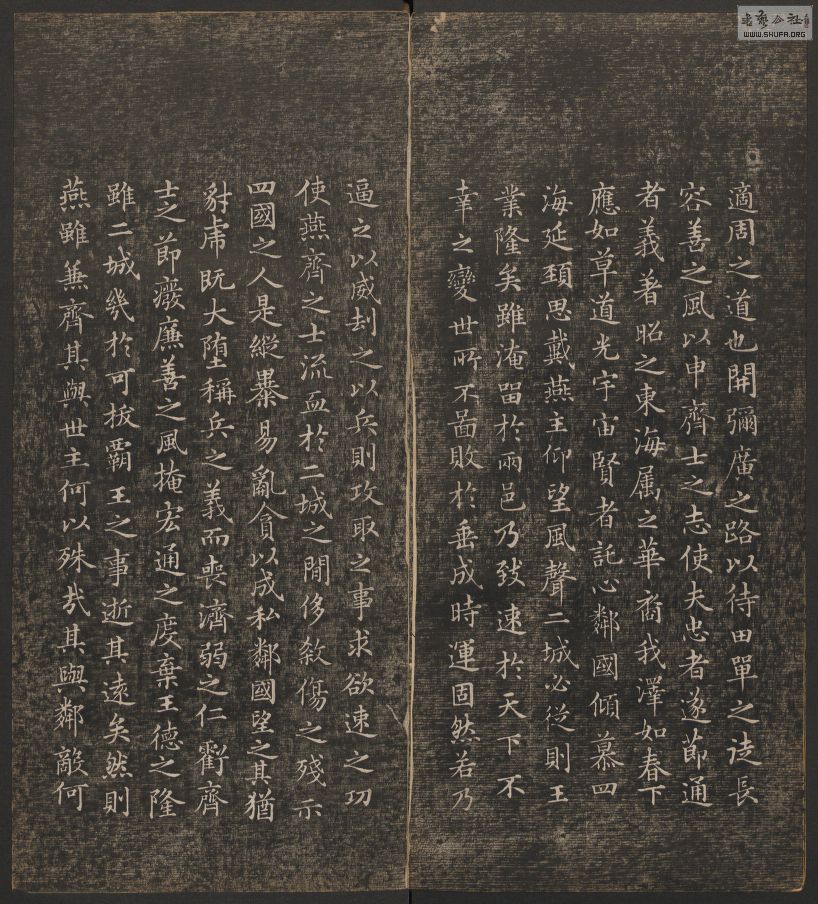 書藝公社
WWW.SHUFA.ORG
適周之道也開彌廣之路以待田單之徒長
容善之風以申齊士之志使夫忠者遂節通
者義著昭之東海属之華裔我澤如春下
應如草道光宇宙賢者託心鄰國傾慕四
海延頸思戴燕主仰望風聲二城必從則王
業隆矣雖淹留於兩邑乃致速於天下不
幸之變世所不啚敗於垂成時運固然若乃
逼之以威刦之以兵則攻取之事求欲速之功
使燕齊之士流血於二城之閒侈殺傷之殘示
四國之人是縱暴易亂貪以成私鄰國望之其猶
豺虎既大堕稱兵之義而喪濟弱之仁虧齊
士之節癈廉善之風掩宏通之度棄王德之隆
雖二城幾於可拔霸王之事逝其遠矣然則
燕雖兼齊其與世主何以殊哉其與鄰敵何